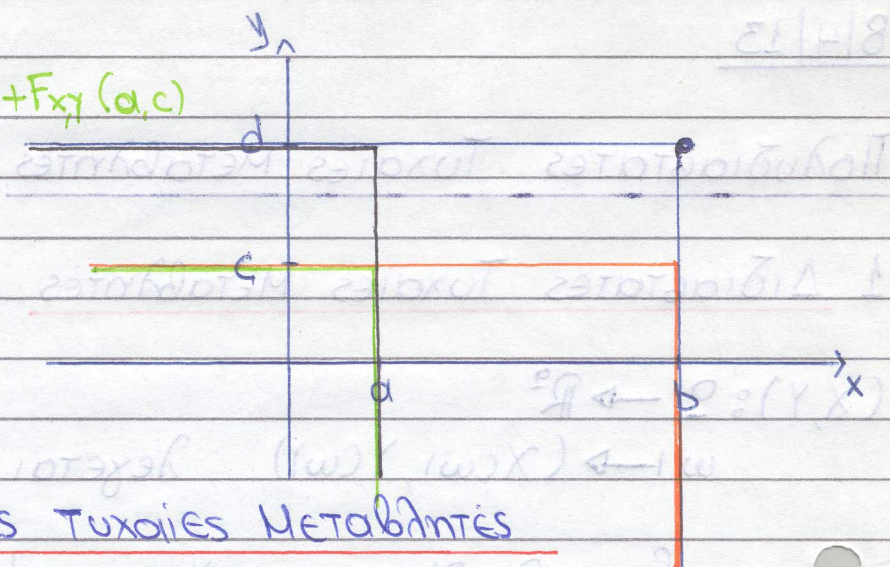 y
+Fx,y (a,c)
d
c
a
b
x
ς Τυχαίες Μεταβλητές